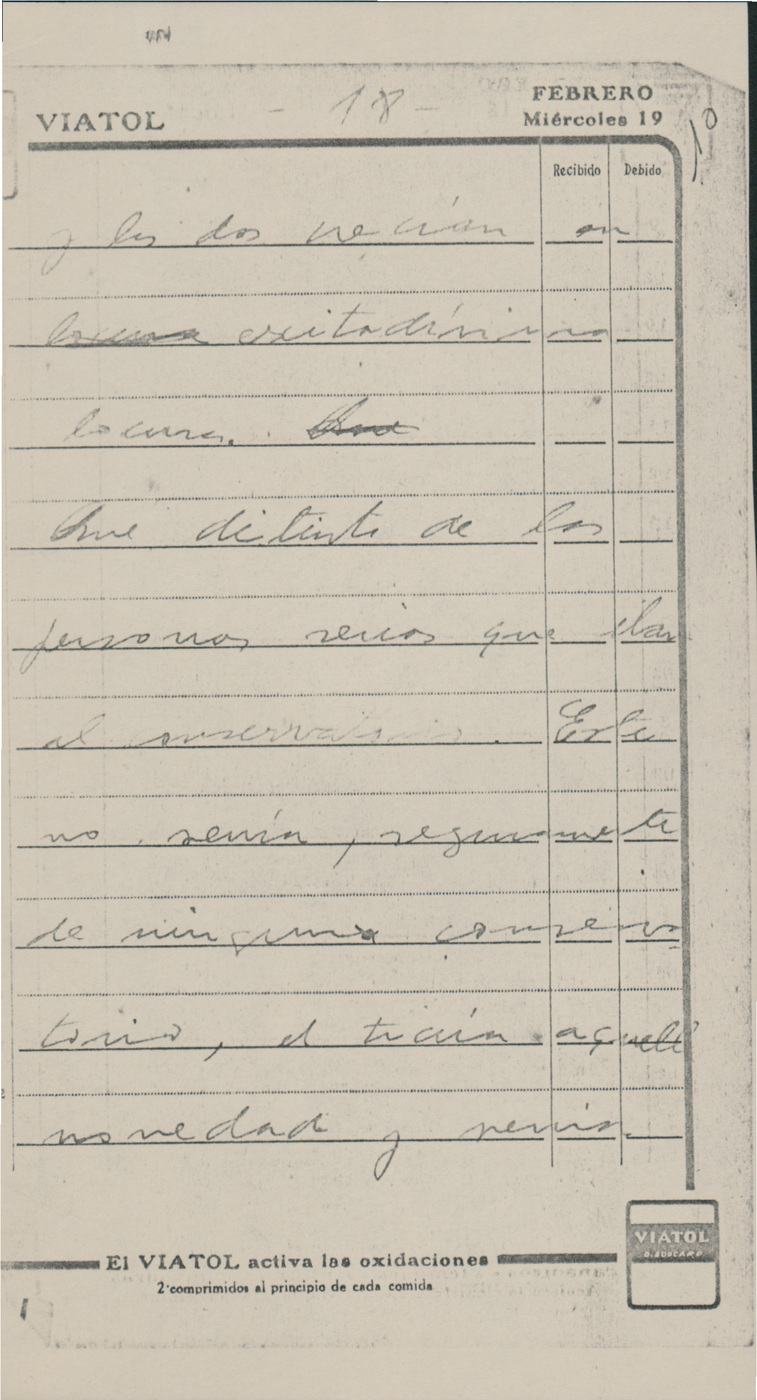 - 18 -
FEBRERO
VIATOL
Miércoles 19
10
Recibido Debido
y los dos recían en
locura exitadísima
locura. Que
Que distinto de las
personas serias que iban
al conservatorio. Este
no venía, seguramente
de ninguna conserva
torio, el traía aquella
novedad y venía.
El VIATOL activa las oxidaciones
2 comprimidos al principio de cada comida
VIATOL
1